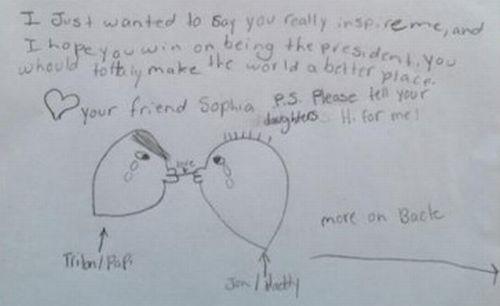 I Just wanted to say you really inspire me, and
I hope you win on being the president. you
whould tottaly make the world a better place.
your friend Sophia P.S. Please tell your
daughters Hi for me!
love
more on Back
Jon /